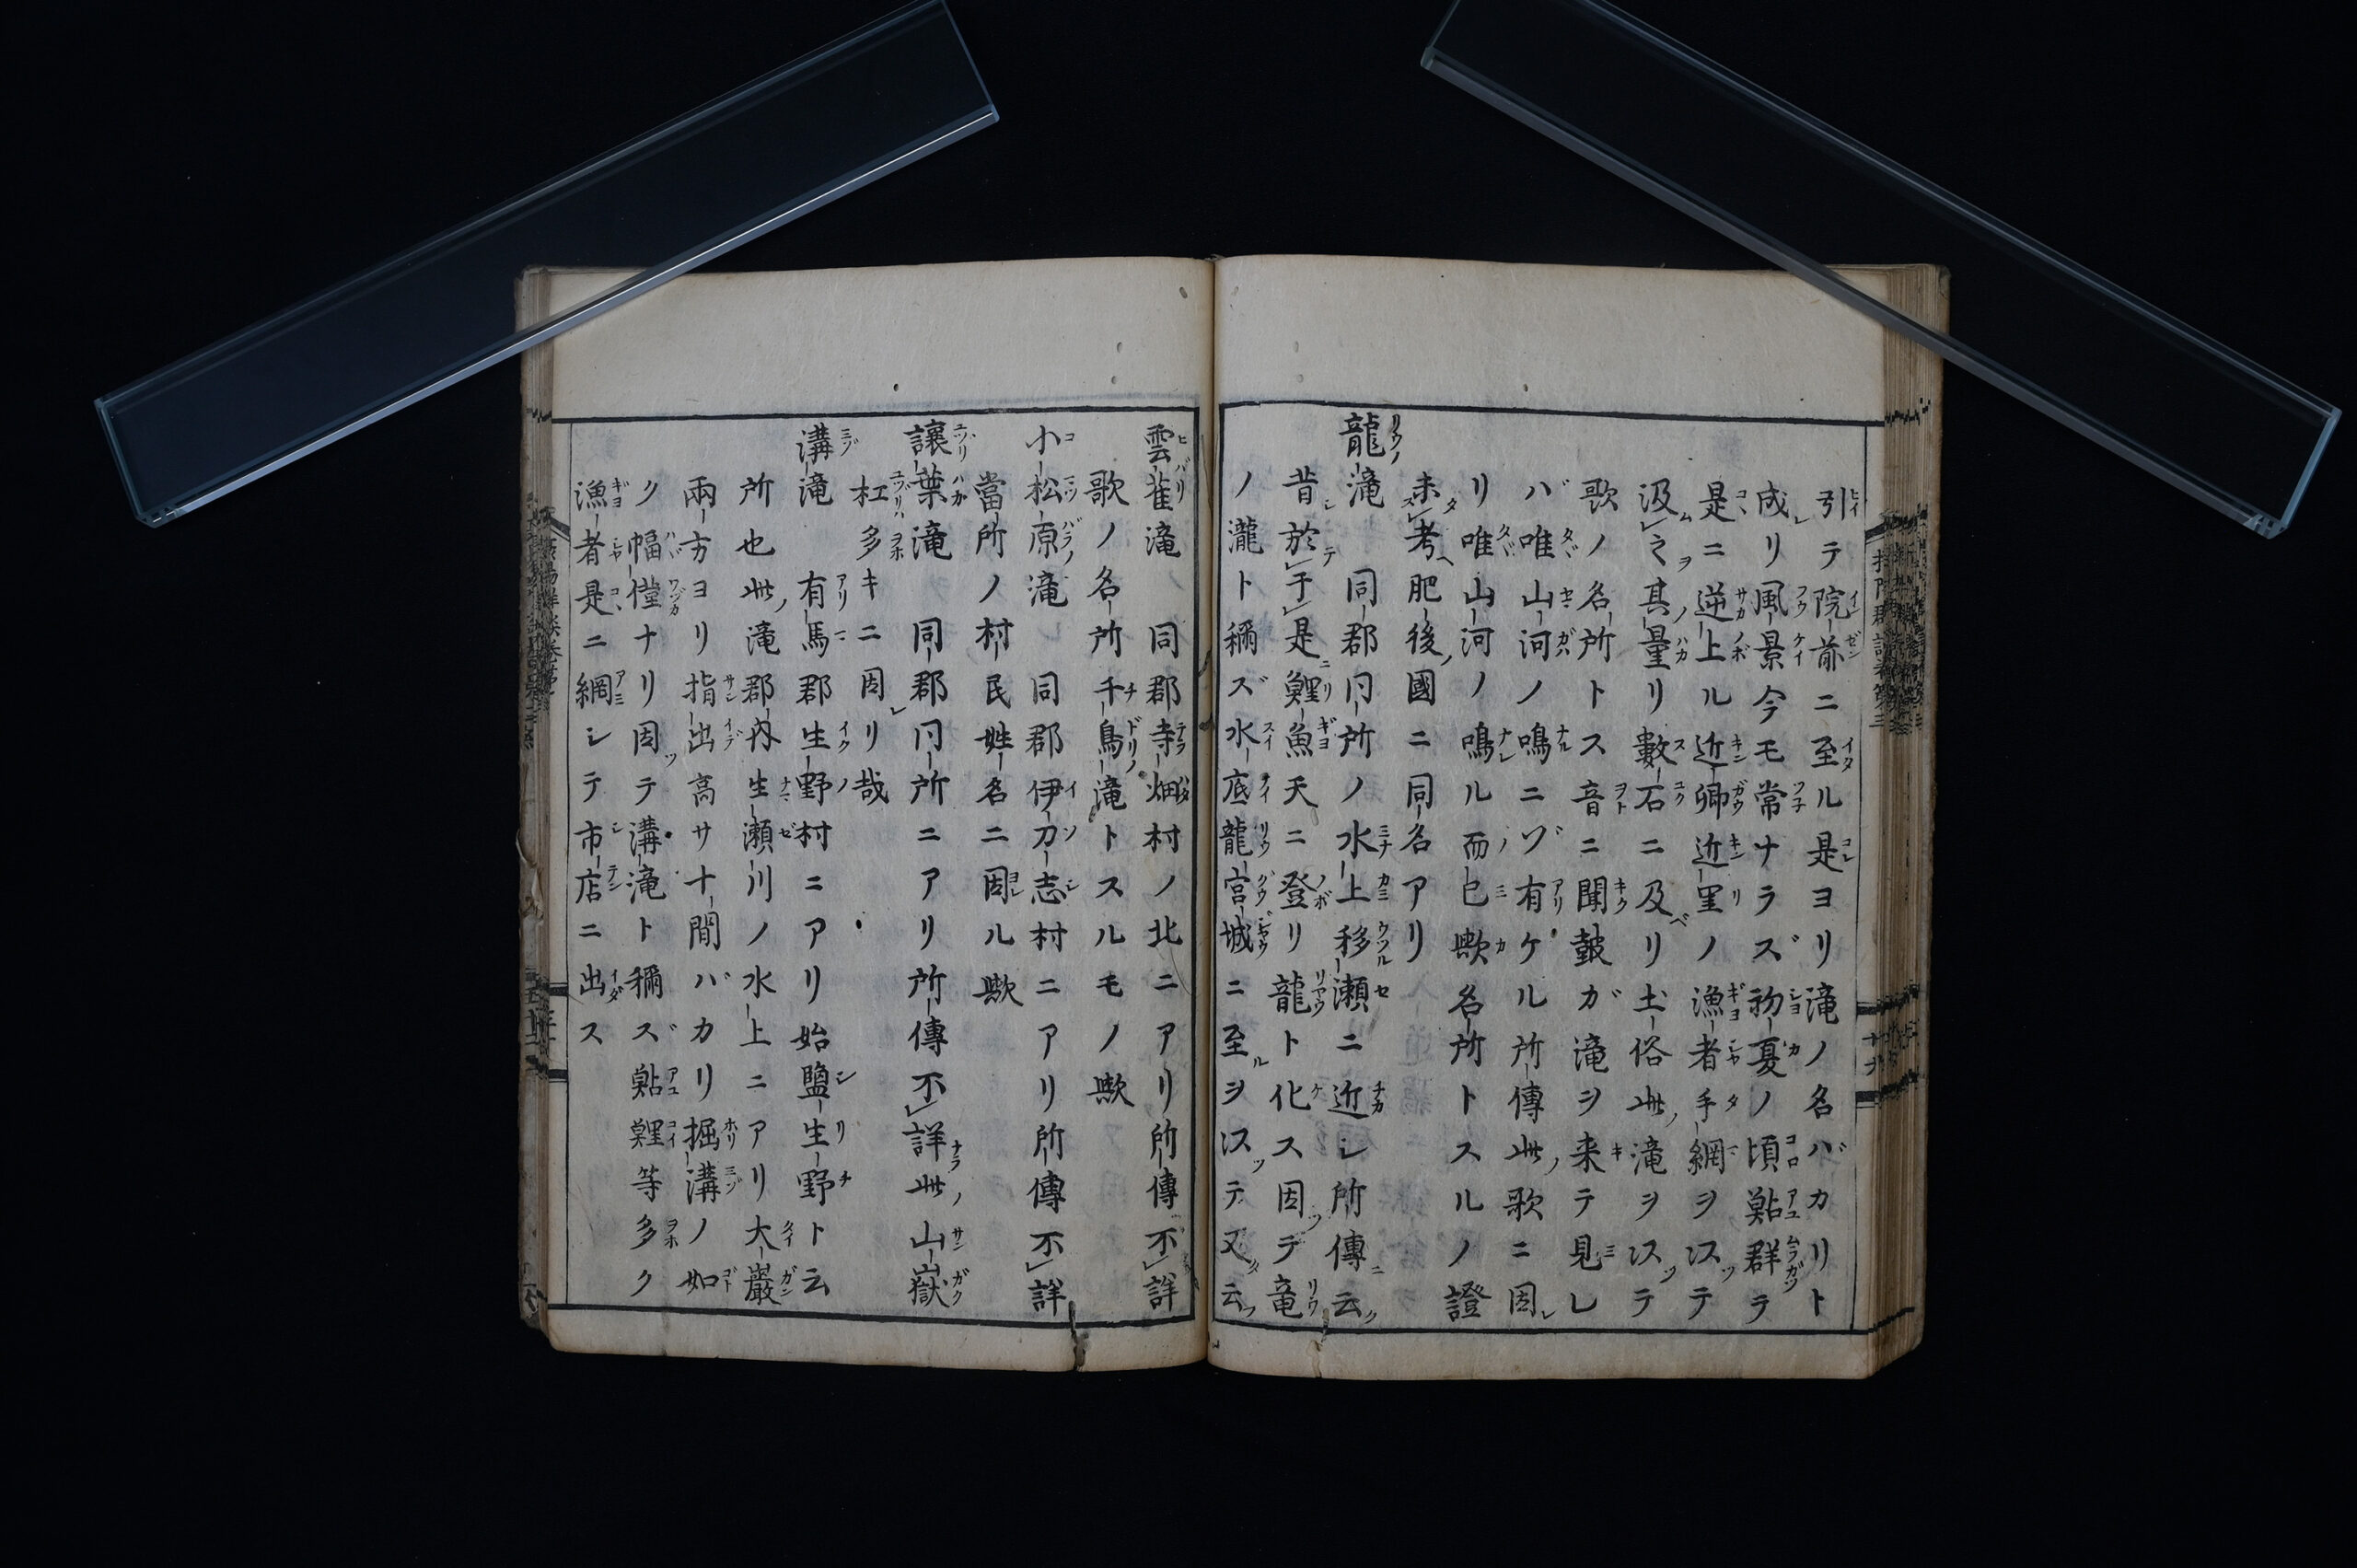 引テ院前ニ至ル是ヨリ滝ノ名バカリト
成リ風景今モ常ナラズ初夏ノ頃鮎群テ
是ニ逆上ル近郷近里ノ漁者手網ヲ以テ
汲之其量リ數石ニ及ベリ土俗此滝ヲ以テ
歌ノ名所トス音ニ聞鼓ガ滝ヲ来テ見レ
バ唯山河ノ鳴ニゾ有ケル所傳此歌ニ因
リ唯山河ノ鳴ル而已歟名所トスルノ證
未考肥後國ニ同名アリ
龍滝 同郡同所ノ水上移瀬ニ近シ所傳云
昔於于是鯉魚天ニ登リ龍ト化ス因テ竜
ノ瀧ト稱ズ水底龍宮城ニ至ルヲ以テ又云
雲雀滝 同郡寺畑村ノ北ニアリ所傳不詳
歌ノ名所千鳥滝トスルモノ歟
小松原滝 同郡伊刀志村ニアリ所傳不詳
當所ノ村民姓名ニ因ル歟
讓葉滝 同郡同所ニアリ所傳不詳此山嶽
杠多キニ因リ哉
溝滝 有馬郡生野村ニアリ始鹽生野ト云
所也此滝郡内生瀬川ノ水上ニアリ大巖
兩方ヨリ指出高サ十間バカリ掘溝ノ如
ク幅僅ナリ因テ溝滝ト稱ズ鮎鯉等多ク
漁者是ニ網シテ市店ニ出ス